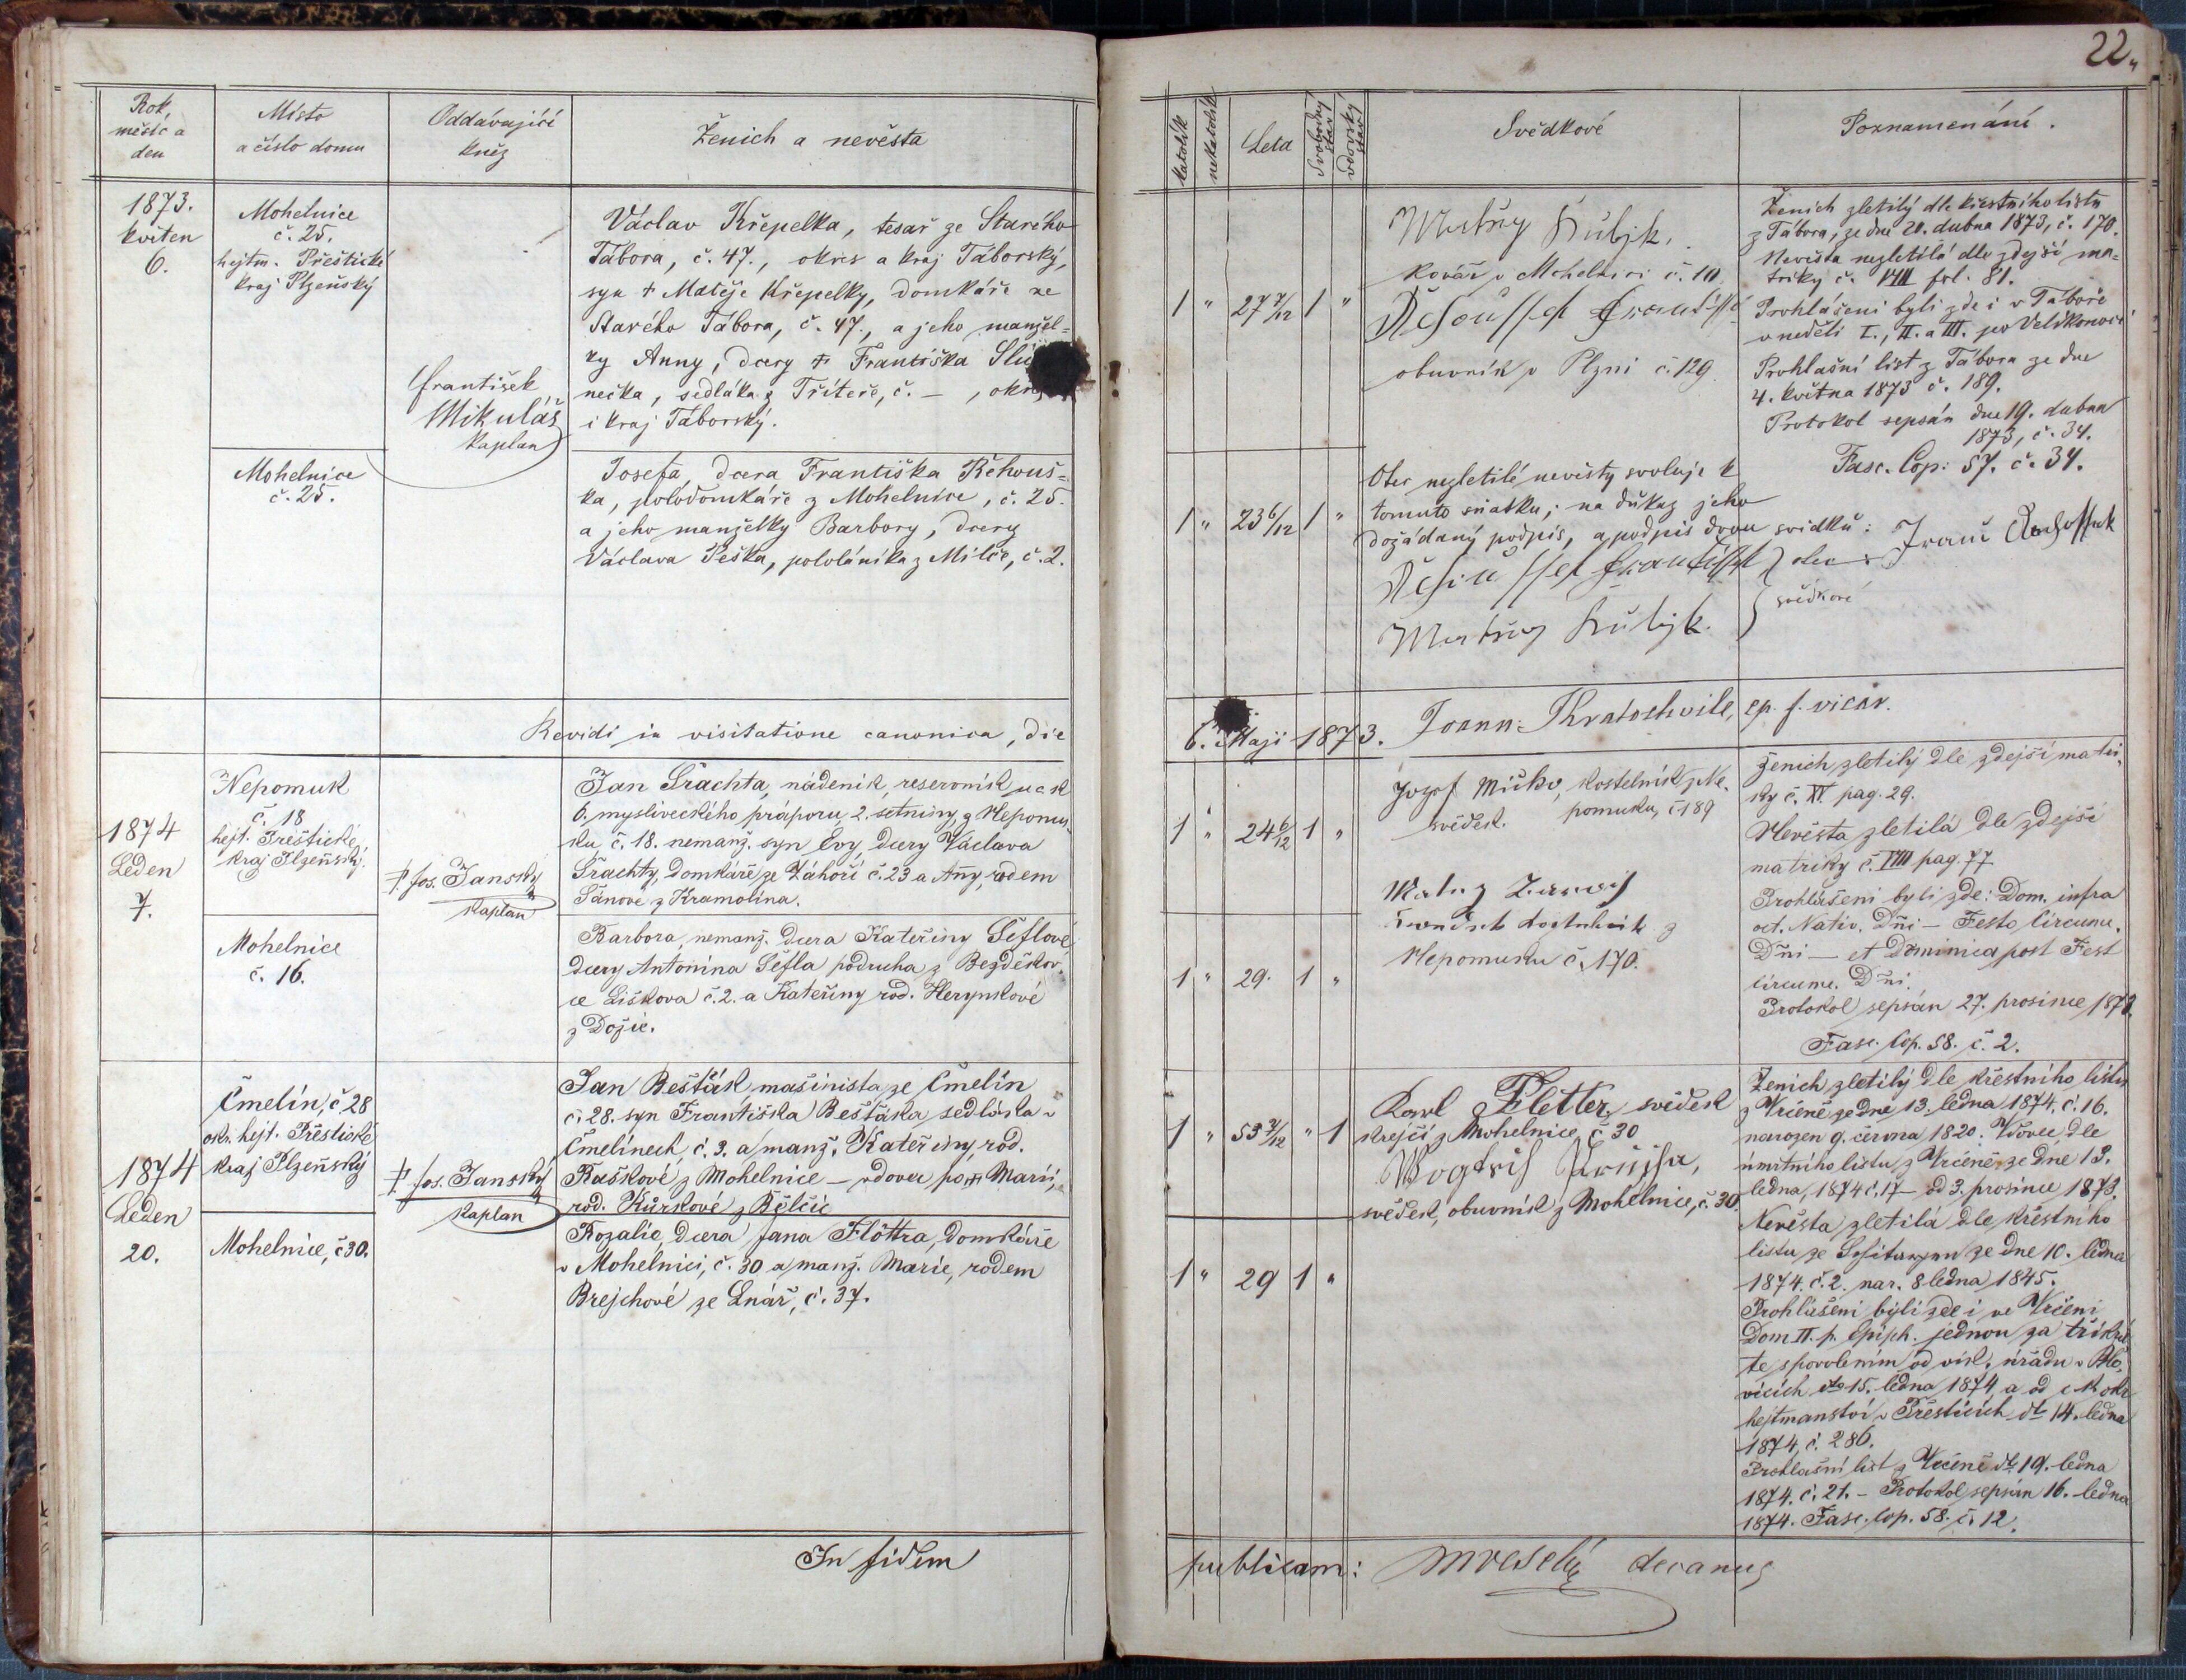 22.
Rok, měsíc a den
Místo a číslo domu
Oddávající kněz
Ženich a nevěsta
katolík
nekatolík
Leta
Svobodný stav
vdovský stav
Svědkové
Poznamenání.
1873.
květen
6.
Mohelnice
č. 25.
hejtm. Přeštické
kraj Plzeňský
František
Mikuláš
kaplan
Václav Křepelka, tesař ze Starého
Tábora, č. 47., okres a kraj Táborský,
syn † Matěje Křepelky, domkáře ze
Starého Tábora, č. 47., a jeho manžel=
ky Anny, dcery † Františka
nečka, sedláka z Třiteře, č. — , okre
i kraj Táborský.
1 " 27 7/12 1 "
kovář v Mohelnici č. 10.
obuvník v Plzni č. 129.
Ženich zletilý dle křestního listu
z Tábora, ze dne 20. dubna 1873, č. 170.
Nevěsta nezletilá dle zdejší ma=
triky č. VIII fol. 81.
Prohlášeni byli zde i v Táboře
v neděli I., II. a III. po Velikonoci
Prohlašní list z Tábora ze dne
4. května 1873 č. 189.
Protokol sepsán dne 19. dubna
1873, č. 34.
Fasc. Cop: 57. č. 34.
Mohelnice
č. 25.
Josefa, dcera Františka Řehouš=
ka, polodomkáře z Mohelnice, č. 25.
a jeho manželky Barbory, dcery
Václava Peška, pololáníka z Milče, č. 2.
1 " 23 6/12 1 "
Otec nezletilé nevěsty svoluje k
tomuto sňatku; na důkaz jeho
dožádaný podpis, a podpis dvou svědků:
otec
svědkové
Revidi in visitatione canonica, die
6. Maji 1873. Joann: Kratochvile, ep. f. vicar.
1874
Leden
7.
Nepomuk
č. 18
hejt. Přeštické,
kraj Plzeňský.
P. Jos. Janský
kaplan
Jan Šrachta, nádeník, reservník u c k
6. mysliveckého práporu, 2. setniny, z Nepomu-
ku, č. 18. nemanž. syn Evy, dcery Václava
Šrachty, domkáře ze Záhoří č. 23 a Any, rodem
Šánové z Kramolína.
1 " 24 6/12 1 "
Jozef Míčko, kostelník z Ne-
pomuku, č 189
svědek.
Nepomuku č. 170.
Ženich zletilý dle zdejší matri-
ky č. XI. pag. 29.
Nevěsta zletilá dle zdejší
matriky č. VIII pag. 77
Prohlášeni byli zde: Dom. infra
oct. Nativ. Dñi — Festo Circumc.
Dñi — et Dominica post Fest
Circumc. Dñi.
Protokol sepsán 27. prosince 1873.
Fasc. Cop. 58. č. 2.
Mohelnice
č. 16.
Barbora, nemanž. dcera Kateřiny Šeflové
dcery Antonína Šefla podruha z Bezděkov-
ce Liškova č. 2. a Kateřiny rod. Herynkové
z Dožic.
1 " 29. 1 "
1874
Leden
20.
Čmelín, č 28
okr. hejt. Přeštické
kraj Plzeňský
P. Jos. Janský
kaplan
Jan Bešťák mašinista ze Čmelín
č. 28. syn Františka Bešťáka sedláka v
Čmelínech, č. 3. a manž. Kateřiny, rod.
Raškové z Mohelnice — vdovec po † Marii,
rod. Kůrkové z Bělčic
1 " 53 7/12 " 1
Karl Fletter, svědek
krejčí z Mohelnice, č 30
svědek, obuvník z Mohelnice, č. 30.
Ženich zletilý dle křestního listu
z Vrčeně ze dne 13. ledna 1874, č. 16.
narozen 9. června 1820. Vdovec dle
úmrtního listu z Vrčeně ze dne 13.
ledna, 1874 č. 17 — od 3. prosince 1873.
Nevěsta zletilá dle křestního
listu ze ze dne 10. ledna
1874. č. 2. nar. 8 ledna 1845.
Prohlášeni byli zde i ve Vrčeni
Dom II. p. Epiph. jednou za třikrá-
te s povolením od vik. úřadu v Blo-
vicích dto 15. ledna 1874, a od c. k. okr.
hejtmanství v Přešticích dto 14. ledna
1874, č. 286.
Prohlašní list z Vrčeně dto 19. ledna
1874. č. 21. — Protokol sepsán 16. ledna
1874. Fasc. Cop. 58. č. 12.
Mohelnice, č 30.
Rozalie, dcera Jana Flöttra, domkáře
v Mohelnici, č. 30 a manž. Marie, rodem
Brejchové ze Lnář, č. 37.
1 " 29 1 "
In fidem
publicam: decanus